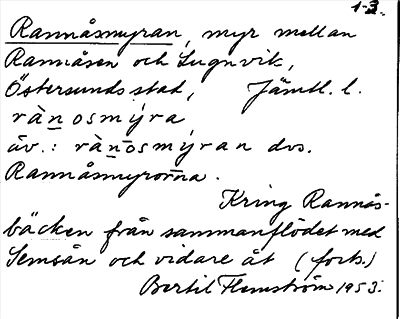 1-3.
Rannåsmyran, myr mellan
Rannåsen och Lugnvik,
Östersunds stad, Jämtl. l.
rànosmýra
äv.: rànosmýran dvs.
Rannåsmyrorna.
Kring Rannås-
bäcken från sammanflödet med
Semsån och vidare åt (forts.)
Bertil Flemström 1953.